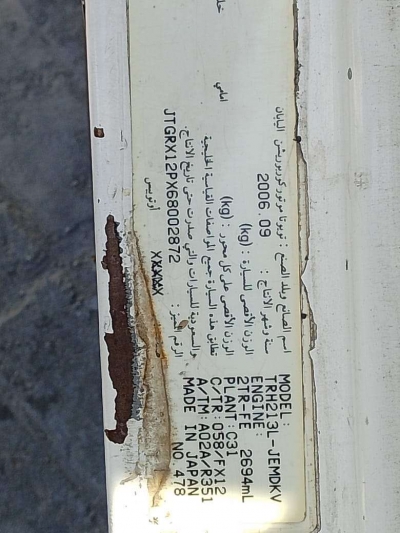 اسم الصانع وبلد الصنع : تويوتا موتور كوربوريشن اليابان
سنة وشهر الانتاج : 2006.09
الوزن الأقصى للسيارة : (kg)
الوزن الأقصى على كل محور : (kg) امامي
تطابق هذه السيارة جميع المواصفات القياسية الخليجية
والسعودية للسيارات والتي صدرت حتى تاريخ الانتاج.
JTGRX12PX68002872
الرقم المميز : أوتوبيس
MODEL:
TRH213L-JEMDKV
ENGINE:
2TR-FE 2694mL
PLANT: C31
C/TR: 058/FX12
A/TM: A02A/R351
MADE IN JAPAN
NO 478